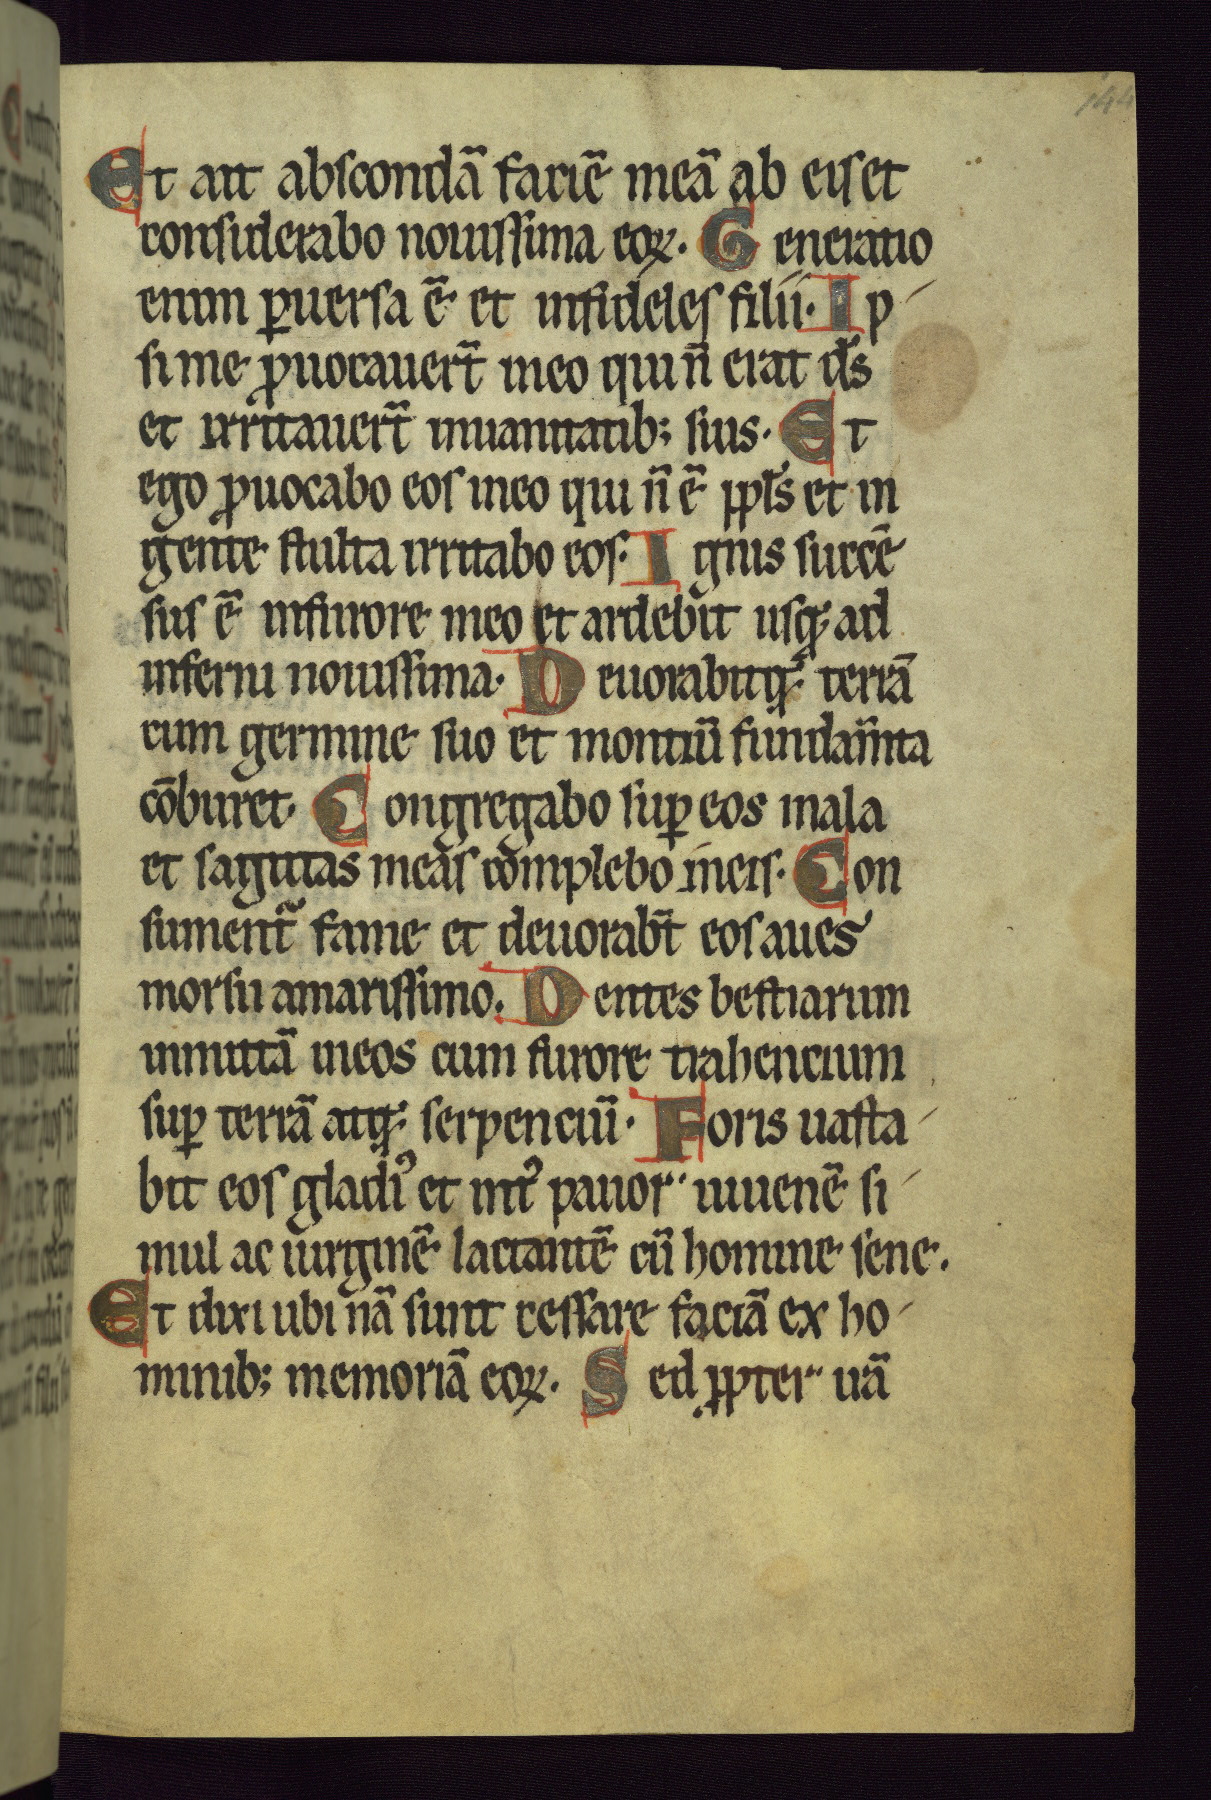 Et ait abscondā faciē meā ab eis et
considerabo nouissima eoꝝ. Generatio
enim ꝑuersa ē et infideles filii. Ip
si me ꝓuocauer̄t in eo qui n̄ erat d̄s
et irritauer̄t in uanitatib; suis. Et
ego ꝓuocabo eos in eo qui n̄ ē ppl̄s et in
gente stulta irritabo eos. Ignis succē
sus ē in furore meo et ardebit usq; ad
inferni nouissima. Deuorabitq; terrā
cum germine suo et montiū fundam̄ta
cōburet. Congregabo suꝑ eos mala
et sagittas meas complebo in eis. Con
sument̄ fame et deuorab̄t eos aues
morsu amarissimo. Dentes bestiarum
inmittā in eos cum furore trahencium
suꝑ terrā atq; serpenciū. Foris uasta
bit eos gladiꝰ et intꝰ pauor iuuenē si
mul ac uirginē lactantē cū homine sene.
Et dixi ubi nā sunt cessare faciā ex ho
minib; memoriā eoꝝ. Sed ꝓpter irā
144